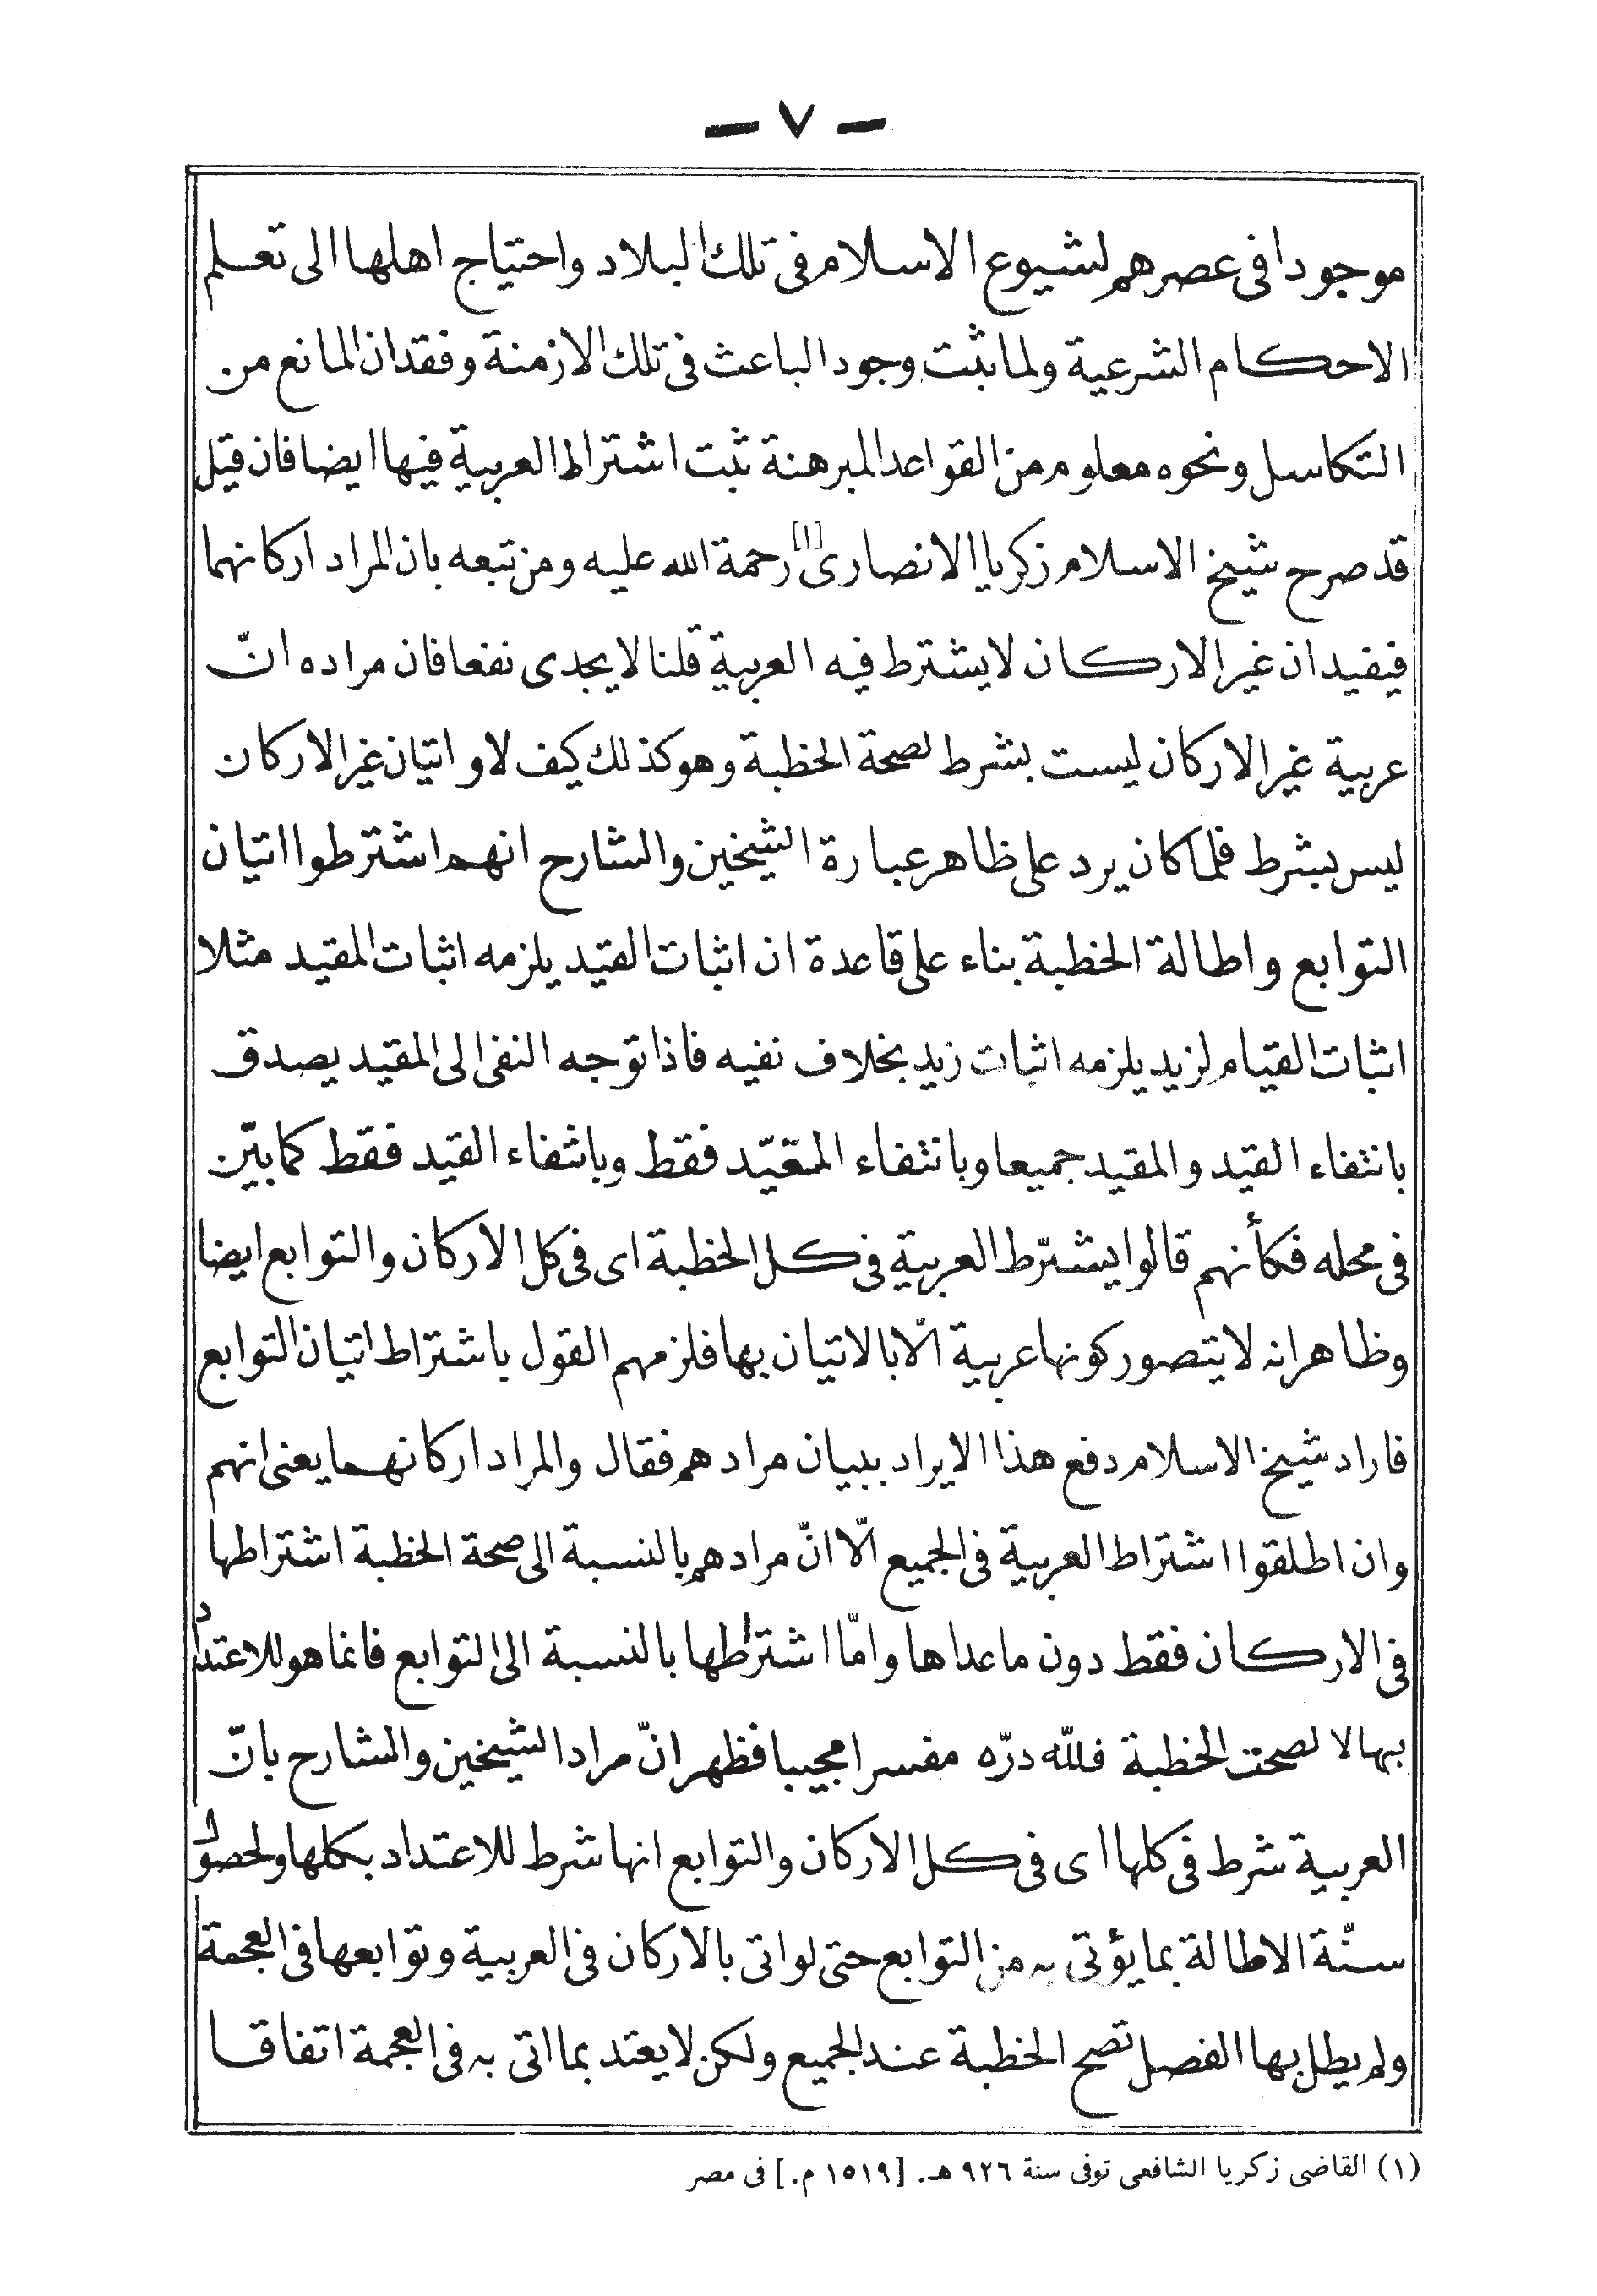 — ٧ —
موجودا فى عصرهم لشيوع الاسلام فى تلك البلاد واحتياج اهلها الى تعلم
الاحكام الشرعية ولما ثبت وجود الباعث فى تلك الازمنة وفقدان المانع من
التكاسل ونحوه معلوم من القواعد المبرهنة ثبت اشتراط العربية فيها ايضا فان قيل
قد صرح شيخ الاسلام زكريا الانصارى [١] رحمة الله عليه ومن تبعه بان المراد اركانهما
فيفيد ان غير الاركان لا يشترط فيه العربية قلنا لا يجدى نفعا فان مراده انّ
عربية غير الاركان ليست بشرط لصحة الخطبة وهو كذلك كيف لا و اتيان غير الاركان
ليس بشرط فلما كان يرد على ظاهر عبارة الشيخين والشارح انهم اشترطوا اتيان
التوابع واطالة الخطبة بناء على قاعدة ان اثبات القيد يلزمه اثبات المقيد مثلا
اثبات القيام لزيد يلزمه اثبات زيد بخلاف نفيه فاذا توجه النفى الى المقيد يصدق
بانتفاء القيد والمقيد جميعا وبانتفاء المقيّد فقط وبانتفاء القيد فقط كما بيّن
فى محله فكأنهم قالوا يشترّط العربية فى كل الخطبة اى فى كل الاركان والتوابع ايضا
وظاهر انه لا يتصور كونها عربية الّا بالاتيان بها فلزمهم القول باشتراط اتيان التوابع
فاراد شيخ الاسلام دفع هذا الايراد ببيان مرادهم فقال والمراد اركانهما يعنى انهم
وان اطلقوا اشتراط العربية فى الجميع الّا انّ مرادهم بالنسبة الى صحة الخطبة اشتراطها
فى الاركان فقط دون ماعداها وامّا اشتراطها بالنسبة الى التوابع فانما هو للاعتداد
بها لا لصحت الخطبة فللّه درّه مفسرا مجيبا فظهر انّ مراد الشيخين والشارح بانّ
العربية شرط فى كلها اى فى كل الاركان والتوابع انها شرط للاعتداد بكلها ولحصول
سنّة الاطالة بما يؤتى به من التوابع حتى لو اتى بالاركان فى العربية وتوابعها فى العجمة
ولم يطل بها الفصل تصح الخطبة عند الجميع ولكن لا يعتد بما اتى به فى العجمة اتفاقا
(١) القاضى زكريا الشافعى توفى سنة ٩٢٦ هـ. [١٥١٩ م.] فى مصر